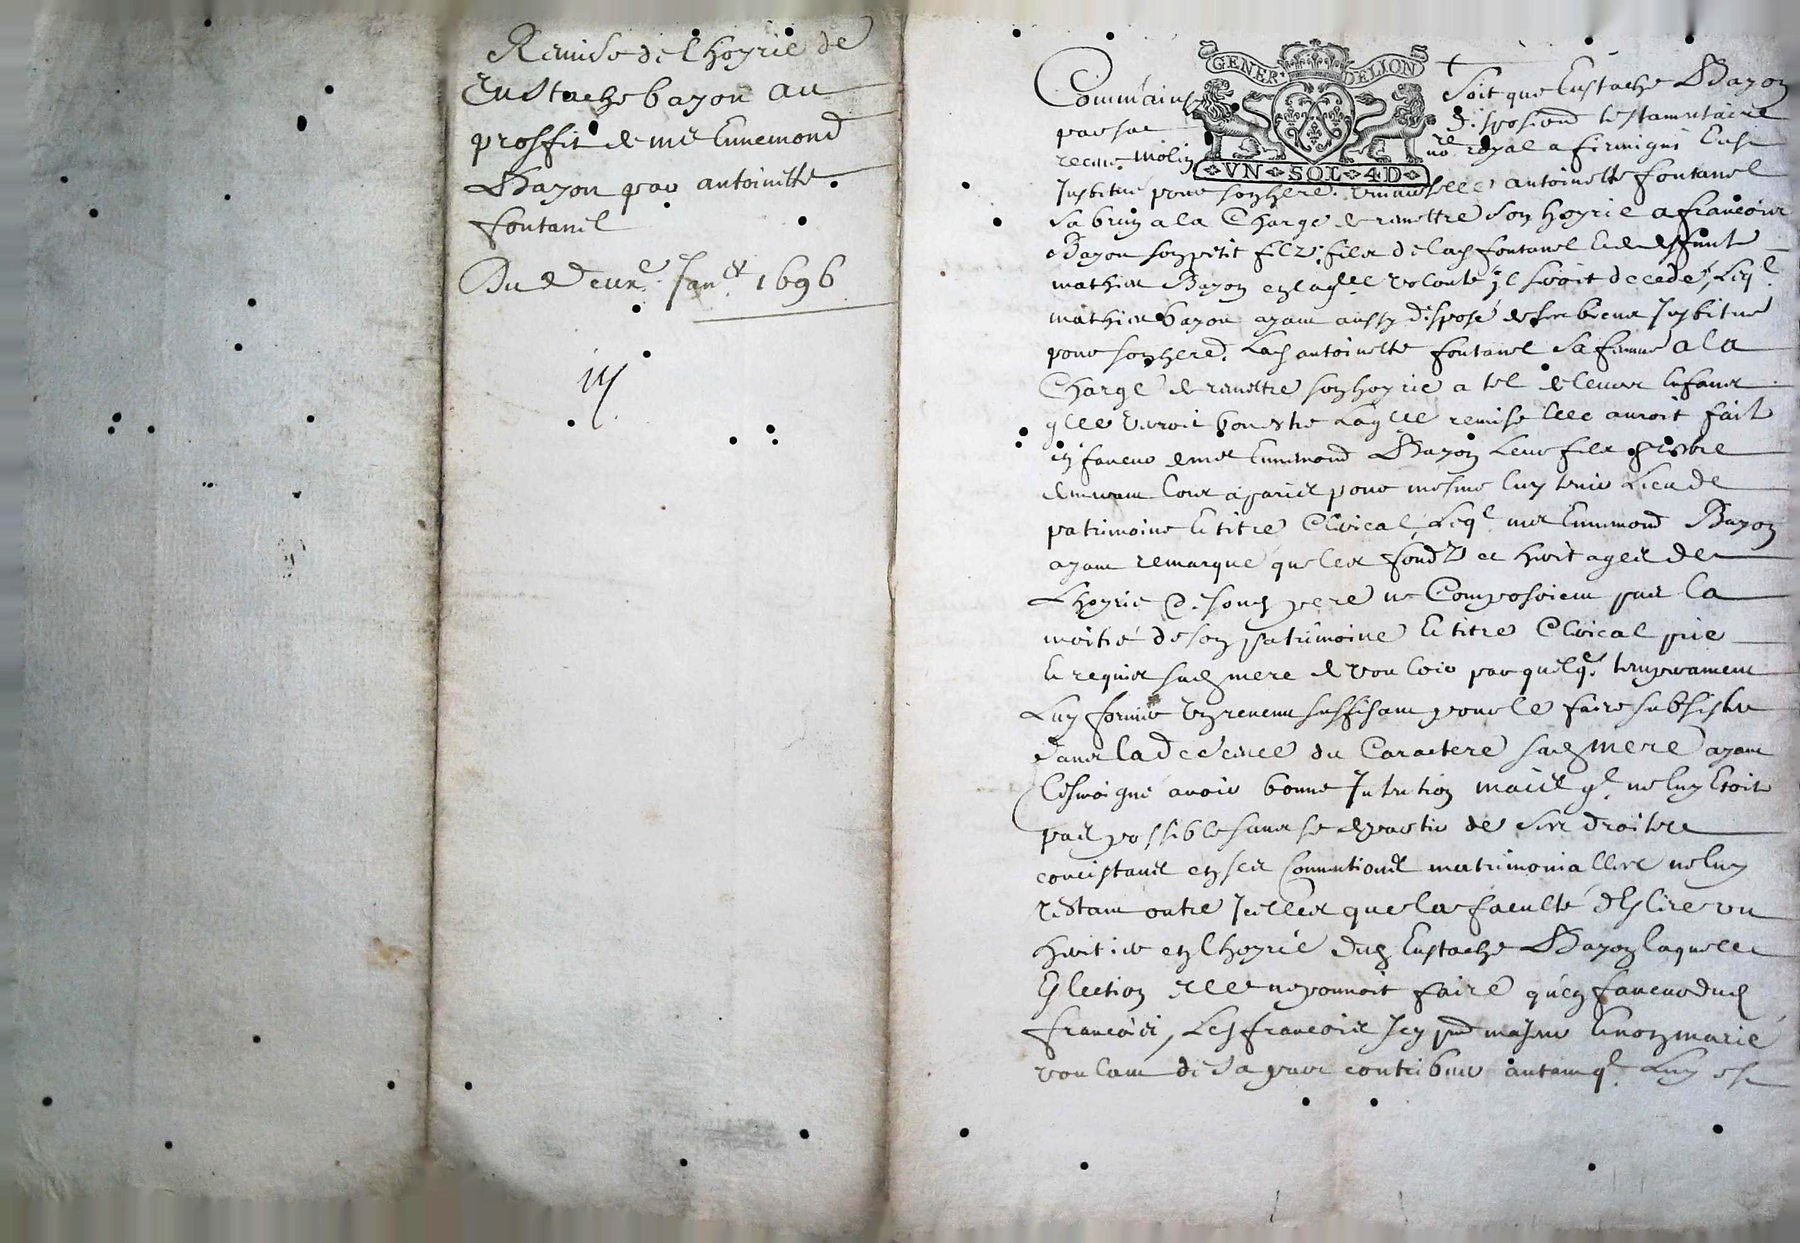 Remise de lhoyrie de
Eustache bayon au
proffit de mre Ennemond
Bayon par antoinette
fontanel
Du deuxe Janer 1696
GENER DELION
VN SOL 4D
Comm'ainsy Soit que Eustache Bayon
par sa disposion testamentaire
receue Molin nore royal a firmigni Eust
Institué pour son here. antoinette fontanel
sa bruy a la Charge de remettre son hoyrie a francois
Bayon son petit filz, filz de lad fontanel & de deffunt
mathieu Bayon en laqlle volonté jl seroit decedé, Leql
mathieu bayon ayant aussy disposé de ses biens Institue
pour son hered. Lad antoinette fontanel sa femme a la
Charge de remettre son hoyrie a tel de leurs Enfans
qlle verroit bon estre Laqlle remise Elle auroit fait
en faveur de mre Ennemond Bayon Leur filz prebre
pour mesme luy tenir Lieu de
patrimoine & titre Clerical, Leql mre Ennemond Bayon
ayant remarqué que les fondz et heritages de
Lhoyrie de soud pere ne Composoient pas la
moitié de son patrimoine & titre Clerical prie
& requis sad mere de vouloir par quelqe temperament
Luy former un revenu suffisant pour le faire subsister
dans la decence du Caractere sad mere ayant
tesmoigné avoir bonne Intention mais ql ne luy Etoit
pas possible sans se departir de ses droitz
concistans en ses Conventions matrimonialles ne luy
restant outre Icelles que la faculté d'Eslire un
heritier en lhoyrie dud Eustache Bayon laquelle
Eslection Elle ne pouvoit faire qu'en faveur dud
francois, Led francois Icy pnt majeur & non marié
voulant de sa part contribuer autant ql Luy est